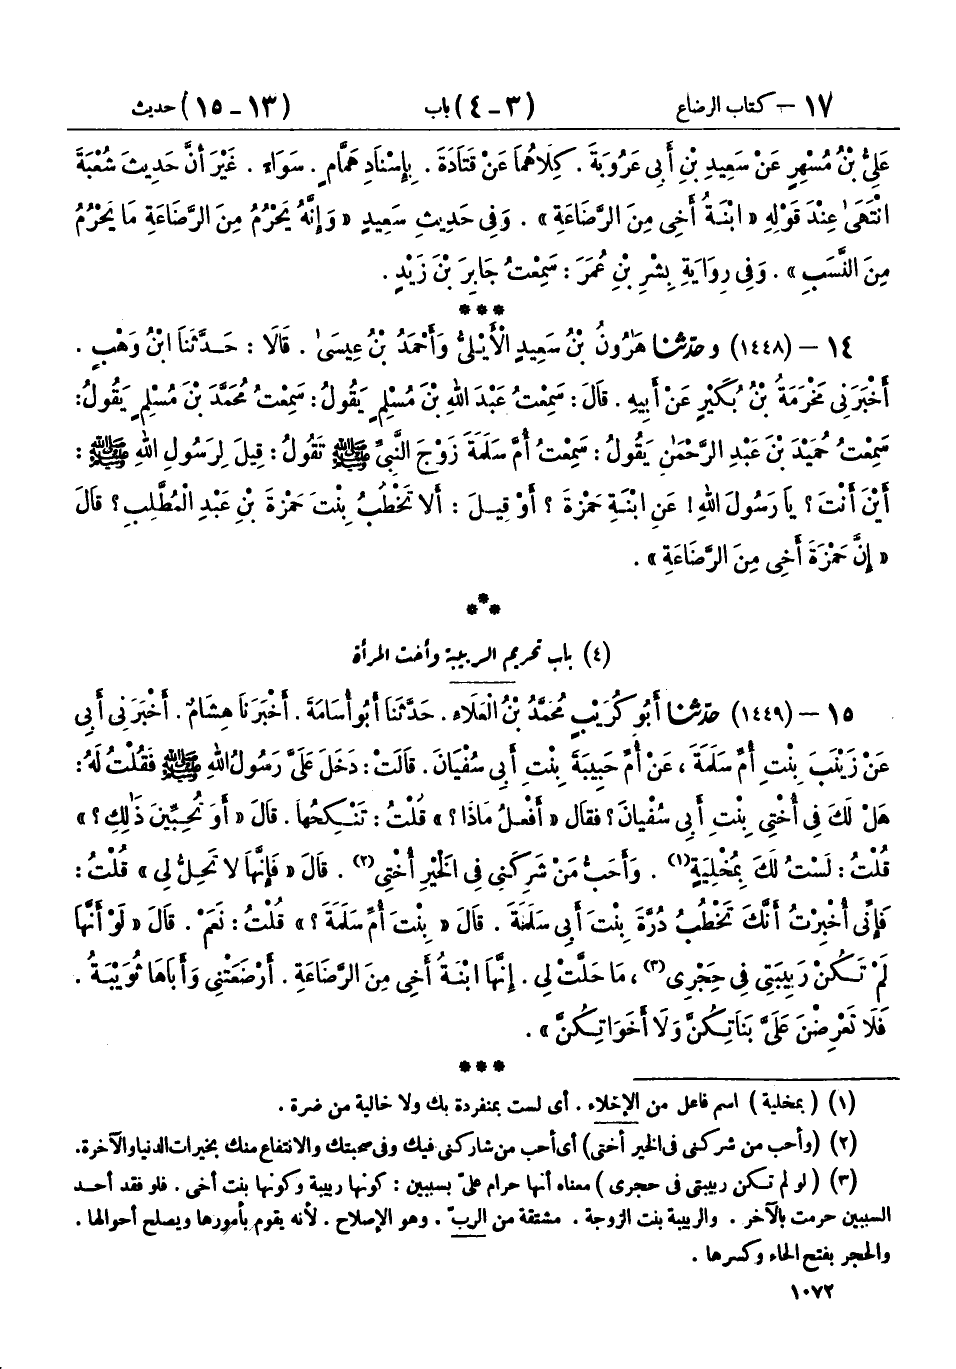 ١٧ – كتاب الرضاع (٣ – ٤) باب (١٣ – ١٥) حديث
عَلِيُّ بْنُ مُسْهِرٍ عَنْ سَعِيدِ بْنِ أَبِي عَرُوبَةَ . كِلَاهُمَا عَنْ قَتَادَةَ . بِإِسْنَادِ هَمَّامٍ . سَوَاءً . غَيْرَ أَنَّ حَدِيثَ شُعْبَةَ
انْتَهَىٰ عِنْدَ قَوْلِهِ « ابْنَةُ أَخِي مِنَ الرَّضَاعَةِ » . وَفِي حَدِيثِ سَعِيدٍ « وَإِنَّهُ يَحْرُمُ مِنَ الرَّضَاعَةِ مَا يَحْرُمُ
مِنَ النَّسَبِ » . وَفِي رِوَايَةِ بِشْرِ بْنِ عُمَرَ : سَمِعْتُ جَابِرَ بْنَ زَيْدٍ .
***
١٤ – (١٤٤٨) وحدّثنا هَٰرُونُ بْنُ سَعِيدٍ الْأَيْلِيُّ وَأَحْمَدُ بْنُ عِيسَىٰ . قَالَا : حَدَّثَنَا ابْنُ وَهْبٍ .
أَخْبَرَنِي مَخْرَمَةُ بْنُ بُكَيْرٍ عَنْ أَبِيهِ . قَالَ : سَمِعْتُ عَبْدَ اللهِ بْنَ مُسْلِمٍ يَقُولُ : سَمِعْتُ مُحَمَّدَ بْنَ مُسْلِمٍ يَقُولُ :
سَمِعْتُ حُمَيْدَ بْنَ عَبْدِ الرَّحْمَٰنِ يَقُولُ : سَمِعْتُ أُمَّ سَلَمَةَ زَوْجَ النَّبِيِّ ﷺ تَقُولُ : قِيلَ لِرَسُولِ اللهِ ﷺ :
أَيْنَ أَنْتَ ؟ يَا رَسُولَ اللهِ ! عَنِ ابْنَةِ حَمْزَةَ ؟ أَوْ قِيلَ : أَلَا تَخْطُبُ بِنْتَ حَمْزَةَ بْنِ عَبْدِ الْمُطَّلِبِ ؟ قَالَ
« إِنَّ حَمْزَةَ أَخِي مِنَ الرَّضَاعَةِ » .
***
(٤) باب تحريم الربيبة وأخت المرأة
١٥ – (١٤٤٩) حدّثنا أَبُو كُرَيْبٍ مُحَمَّدُ بْنُ الْعَلَاءِ . حَدَّثَنَا أَبُو أُسَامَةَ . أَخْبَرَنَا هِشَامٌ . أَخْبَرَنِي أَبِي
عَنْ زَيْنَبَ بِنْتِ أُمِّ سَلَمَةَ ، عَنْ أُمِّ حَبِيبَةَ بِنْتِ أَبِي سُفْيَانَ . قَالَتْ : دَخَلَ عَلَيَّ رَسُولُ اللهِ ﷺ فَقُلْتُ لَهُ :
هَلْ لَكَ فِي أُخْتِي بِنْتِ أَبِي سُفْيَانَ ؟ فَقَالَ « أَفْعَلُ مَاذَا ؟ » قُلْتُ : تَنْكِحُهَا . قَالَ « أَوَ تُحِبِّينَ ذَٰلِكِ ؟ »
قُلْتُ : لَسْتُ لَكَ بِمُخْلِيَةٍ(١) . وَأَحَبُّ مَنْ شَرِكَنِي فِي الْخَيْرِ أُخْتِي(٢) . قَالَ « فَإِنَّهَا لَا تَحِلُّ لِي » قُلْتُ :
فَإِنِّي أُخْبِرْتُ أَنَّكَ تَخْطُبُ دُرَّةَ بِنْتَ أَبِي سَلَمَةَ . قَالَ « بِنْتَ أُمِّ سَلَمَةَ ؟ » قُلْتُ : نَعَمْ . قَالَ « لَوْ أَنَّهَا
لَمْ تَكُنْ رَبِيبَتِي فِي حِجْرِي(٣) ، مَا حَلَّتْ لِي . إِنَّهَا ابْنَةُ أَخِي مِنَ الرَّضَاعَةِ . أَرْضَعَتْنِي وَأَبَاهَا ثُوَيْبَةُ .
فَلَا تَعْرِضْنَ عَلَيَّ بَنَاتِكُنَّ وَلَا أَخَوَاتِكُنَّ » .
***
(١) (بمخلية) اسم فاعل من الإخلاء . أى لست بمنفردة بك ولا خالية من ضرة .
(٢) (وأحب من شركنى فى الخير أختى) أى أحب من شاركنى فيك وفى صحبتك والانتفاع منك بخيرات الدنيا والآخرة .
(٣) (لو لم تكن ربيبتى فى حجرى) معناه أنها حرام علىّ بسببين : كونها ربيبة وكونها بنت أخى . فلو فقد أحد
السببين حرمت بالآخر . والربيبة بنت الزوجة . مشتقة من الربّ . وهو الإصلاح . لأنه يقوم بأمورها ويصلح أحوالها .
والحجر بفتح الحاء وكسرها .
١٠٧٢